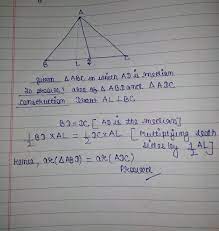 A
B L D C
Given △ABC in which AD is median
To prove: area of △ABD and △ADC
Construction Draw AL⊥BC
BD = DC [AD is the median]
1/2 BD × AL = 1/2 DC × AL [Multiplying both
sides by 1/2 AL]
Hence, ar(△ABD) = ar(ADC)
Proved